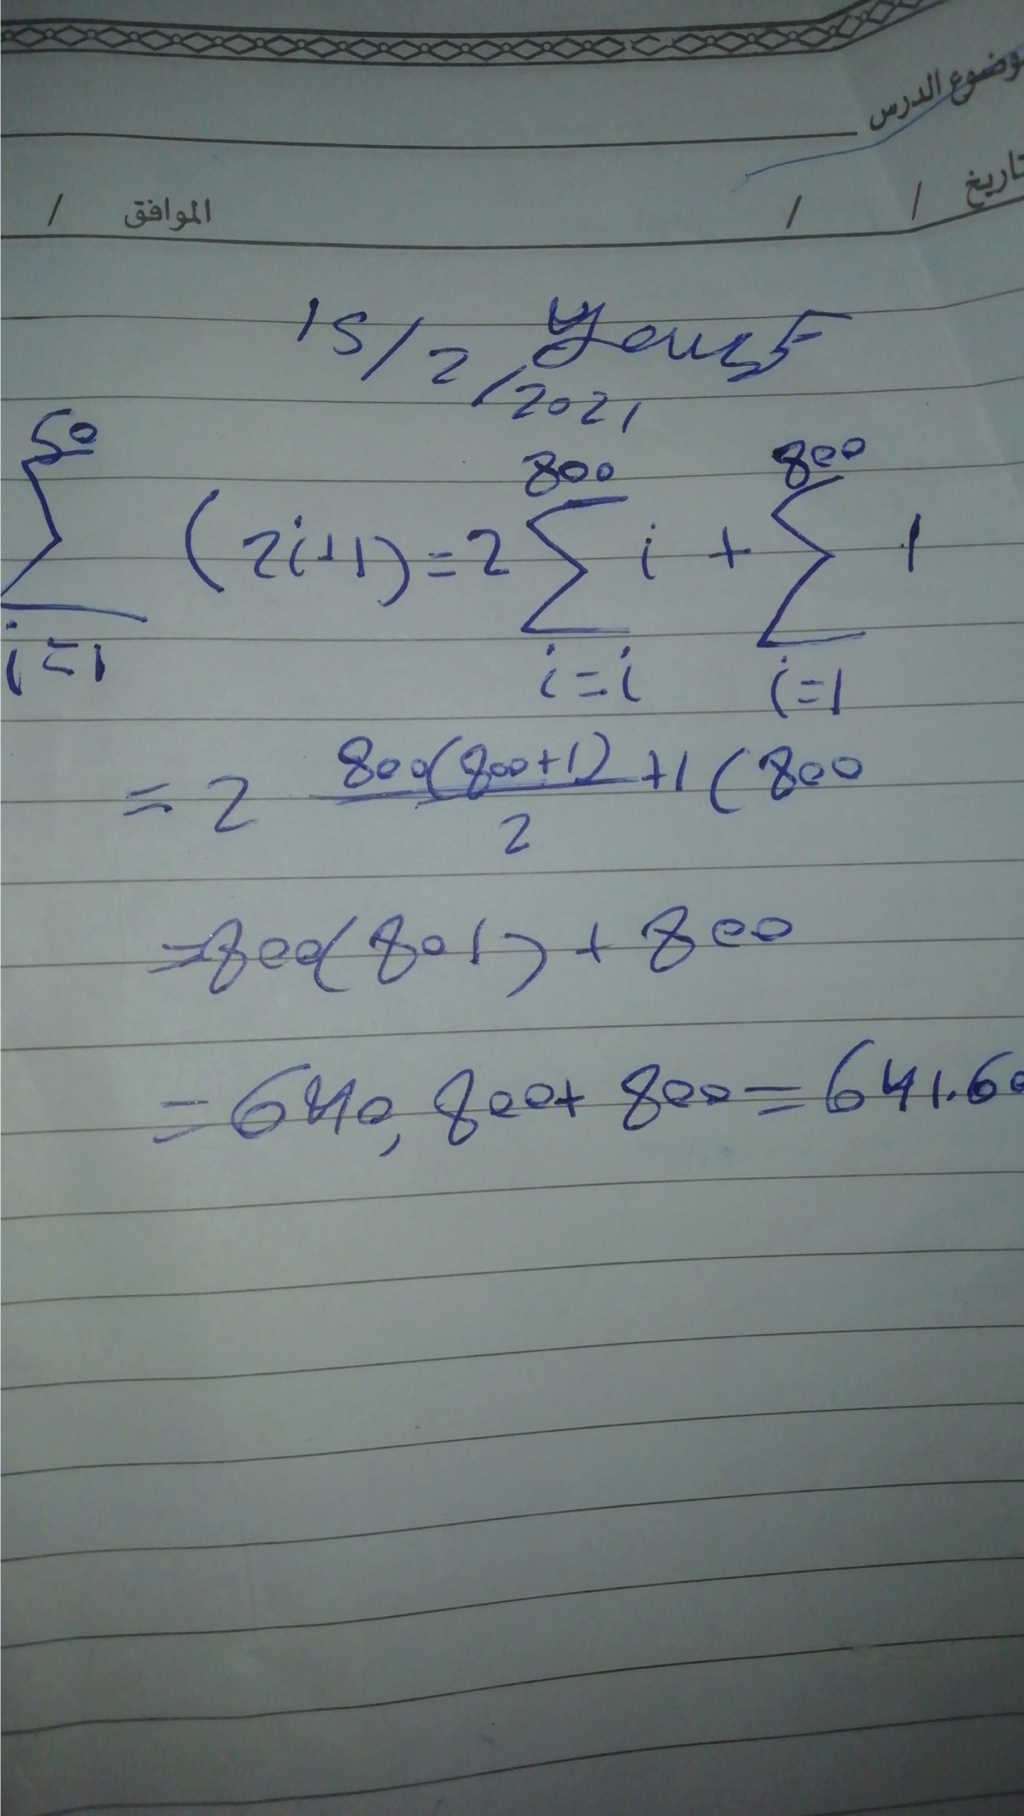 موضوع الدرس
تاريخ / / الموافق /
15/2/2021 Yousf
50 800 800
∑ (2i+1) = 2 ∑ i + ∑ 1
i=1 i=i i=1
= 2 800(800+1)/2 +1(800
=800(801) + 800
=640,800+ 800=641.60